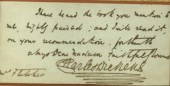 have heard the book you mention to
me, highly praised; and will read it,
on your recommendation, forthwith
always dear madam faithfully yours
Charles Dickens